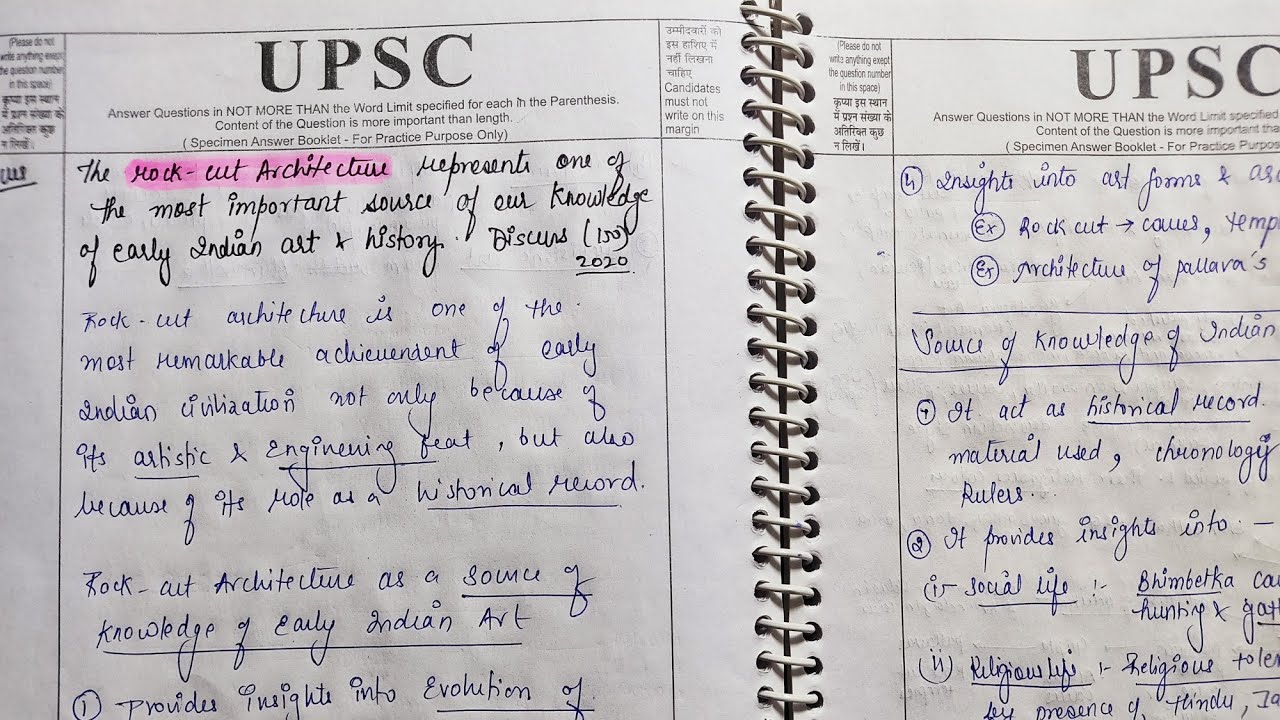 (Please do not
write anything exept
the question number
in this space)
कृप्या इस स्थान
में प्रश्न संख्या के
अतिरिक्त कुछ
न लिखें।
UPSC
Answer Questions in NOT MORE THAN the Word Limit specified for each in the Parenthesis.
Content of the Question is more important than length.
( Specimen Answer Booklet - For Practice Purpose Only)
उम्मीदवारों को
इस हाशिए में
नहीं लिखना
चाहिए
Candidates
must not
write on this
margin
The Rock-cut Architecture represents one of
the most important source of our Knowledge
of early Indian art & history. Discuss (150)
2020
Rock-cut architecture is one of the
most remarkable achievendent of early
Indian civilization not only because of
its artistic & Enginvering feat, but also
because of its role as a historical record.
Rock-cut Architecture as a source of
knowledge of Early Indian Art
① Provides Insights into Evolution of
(Please do not
write anything exept
the question number
in this space)
कृप्या इस स्थान
में प्रश्न संख्या के
अतिरिक्त कुछ
न लिखें।
UPSC
Answer Questions in NOT MORE THAN the Word Limit specified
Content of the Question is more important tha
( Specimen Answer Booklet - For Practice Purpos
4) Insights into art forms &
Ex Rock cut → caves, temp
Ex Architecture of Pallava's
Source of Knowledge of Indian
It act as historical record.
material used, chronology
Rulers..
② It provides insights into :-
(i) social life :- Bhimbetka ca
hunting & gat
(ii) Religious life :- Religious toler
by presence of Hindu, Ja